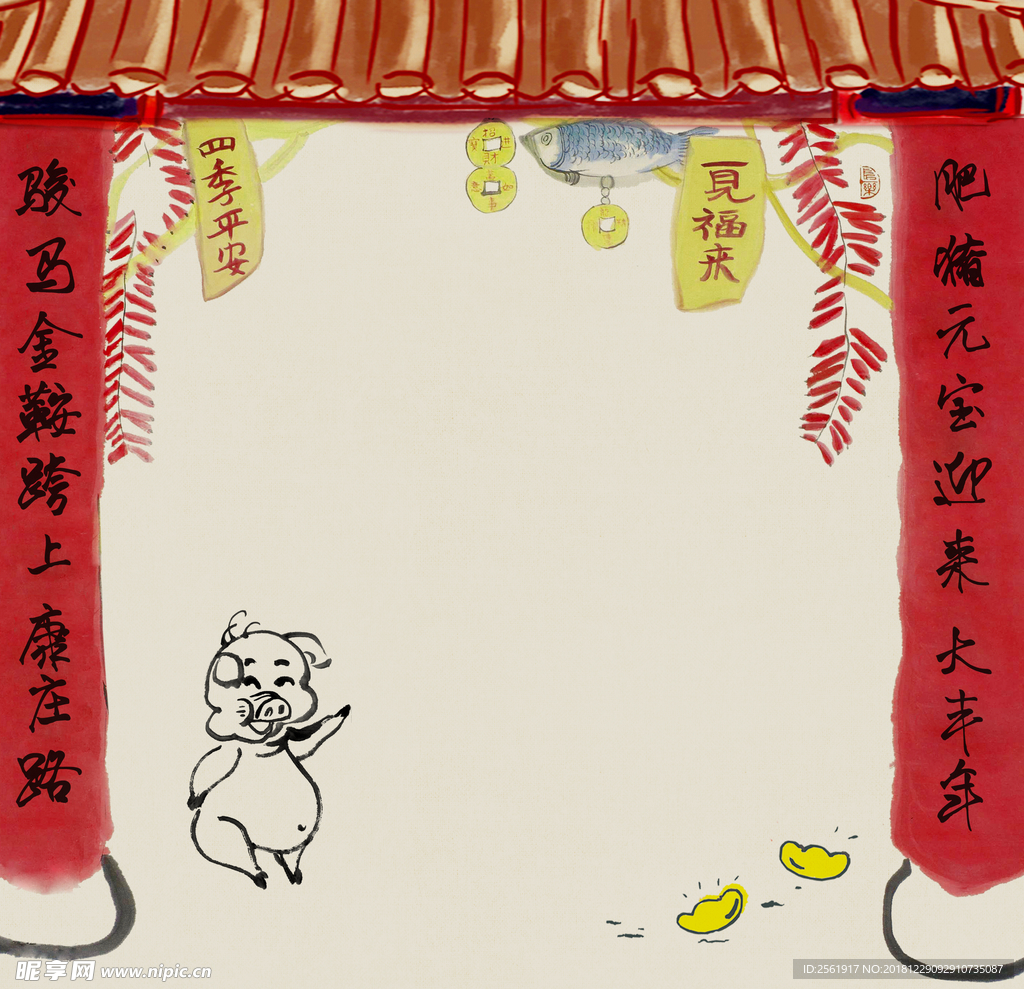 骏马金鞍跨上康庄路
四季平安
招财
一見福来
肥猪元宝迎来大丰年
昵享网 www.nipic.cn
ID:2561917 NO:20181229092910735087